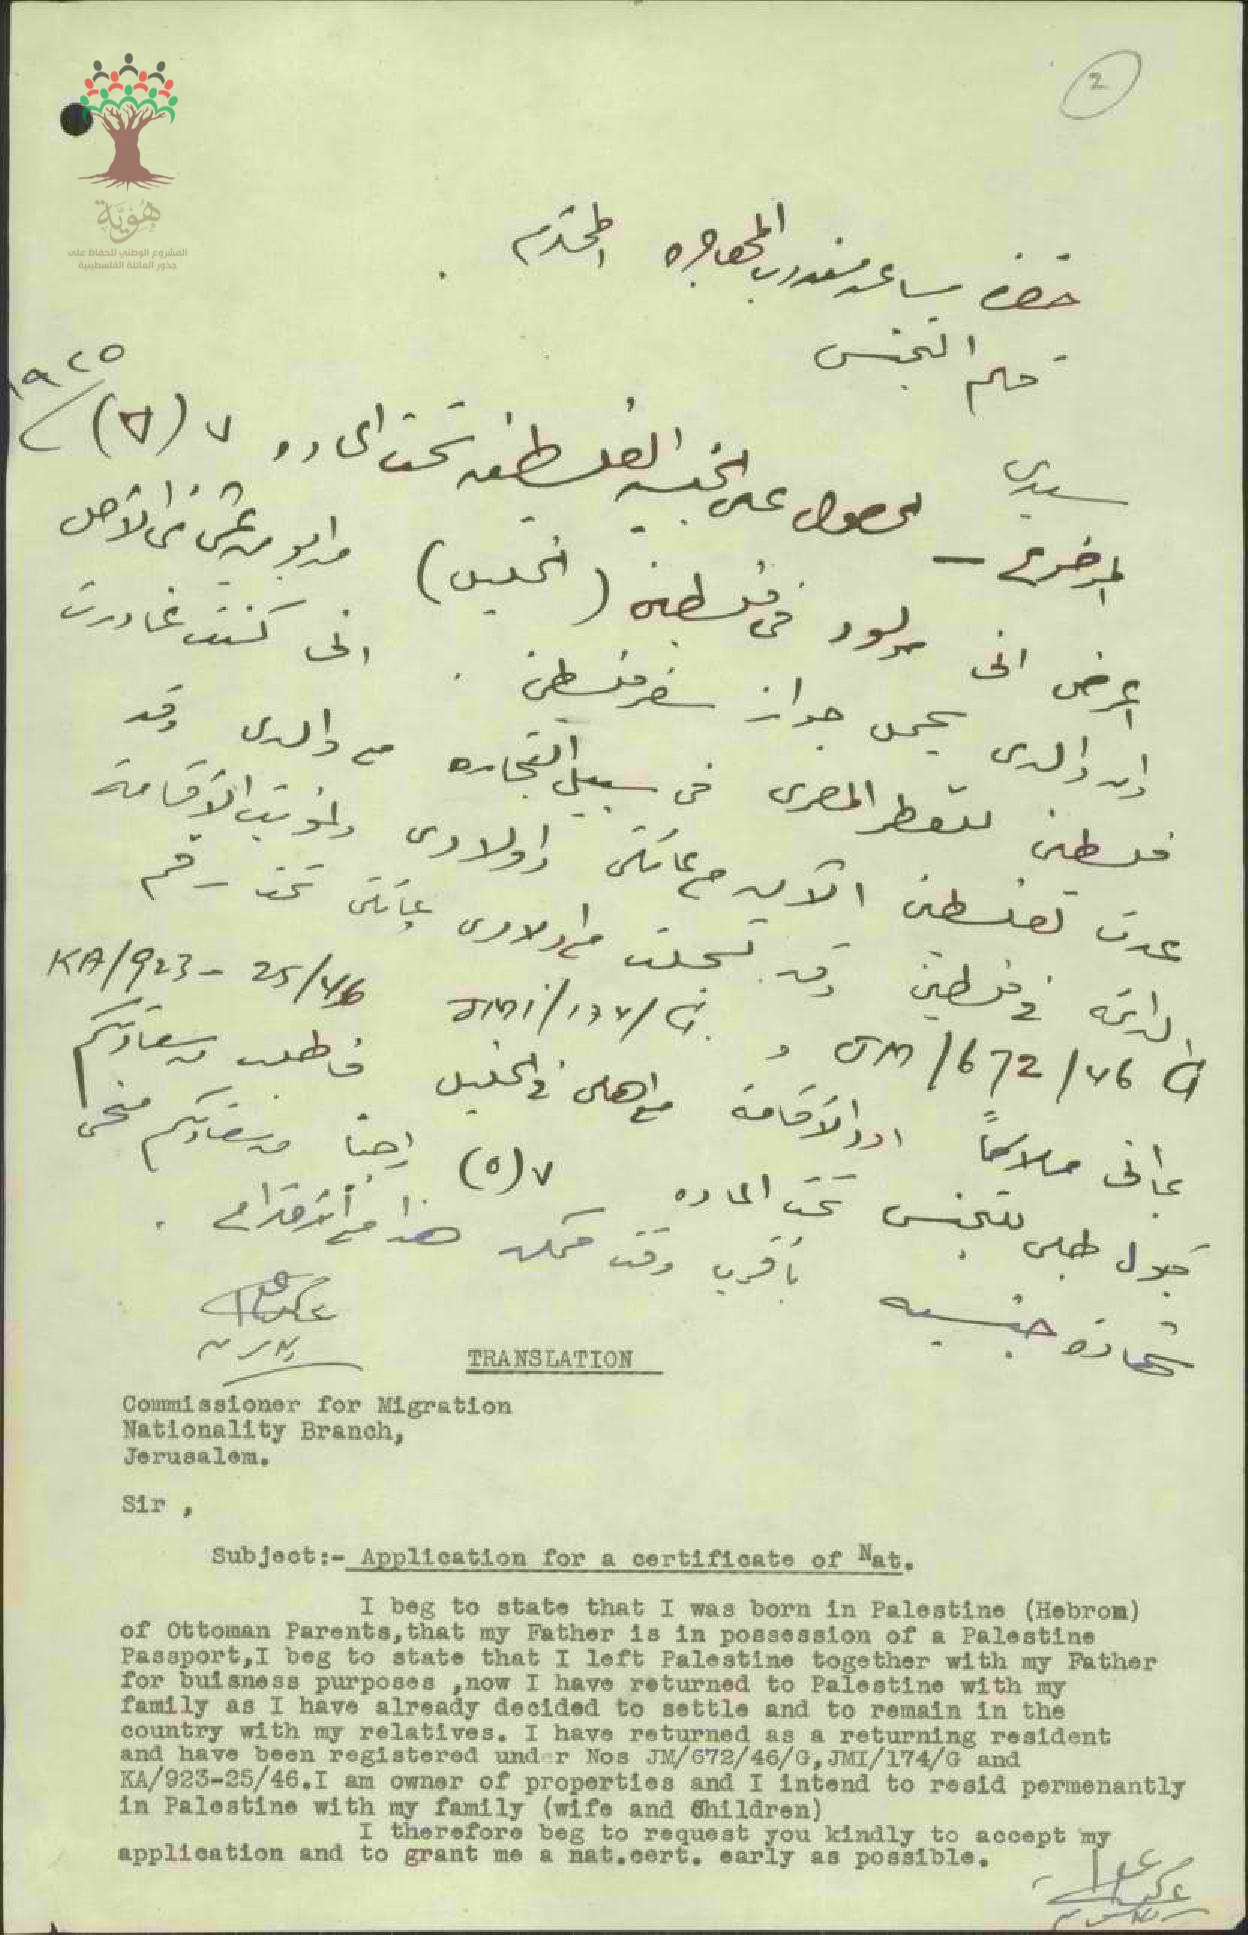 2
هُوِيَّة
المشروع الوطني للحفاظ على
جذور العائلة الفلسطينية
حضرة مساعد مندوب المهاجره المحترم .
قلم التجنس
سيدي
١٩٢٥
الموضوع — لحصول على الجنسيه الفلسطينيه تحت الماده ٧ (
اعرض انى مولود فى فلسطين (الخليل) من ابوين عثمانى الأصل
وان والدى يحمل جواز سفر فلسطينى . انى كنت غادرت
فلسطين للقطر المصرى فى سبيل التجاره مع والدى وقد
عدت لفلسطين الآن مع عائلتى واولادى ونويت الأقامة
الدائمة فى فلسطين وقد تسجلت مع اولادى عائلتى تحت رقم
JM/672/46/G و JMI/174/G KA/923-25/46
بما انى ملاكاً اود الأقامة مع اهلى فى الخليل فاطلب من سعادتكم
قبول طلبى للتجنس تحت الماده ٧(٥) راجيا من سعادتكم منحى
شهادة جنسيه بأقرب وقت ممكن هذا مع احترامى .
TRANSLATION
Commissioner for Migration
Nationality Branch,
Jerusalem.
Sir ,
Subject:- Application for a certificate of Nat.
I beg to state that I was born in Palestine (Hebron)
of Ottoman Parents,that my Father is in possession of a Palestine
Passport,I beg to state that I left Palestine together with my Father
for buisness purposes ,now I have returned to Palestine with my
family as I have already decided to settle and to remain in the
country with my relatives. I have returned as a returning resident
and have been registered under Nos JM/672/46/G,JMI/174/G and
KA/923-25/46.I am owner of properties and I intend to resid permenantly
in Palestine with my family (wife and Children)
I therefore beg to request you kindly to accept my
application and to grant me a nat.cert. early as possible.